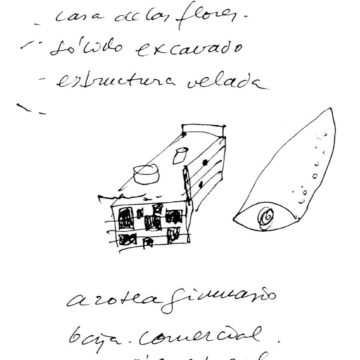 casa de las flores.
- sólido excavado
- estructura velada
-
azotea gimnasio
baja. comercial.